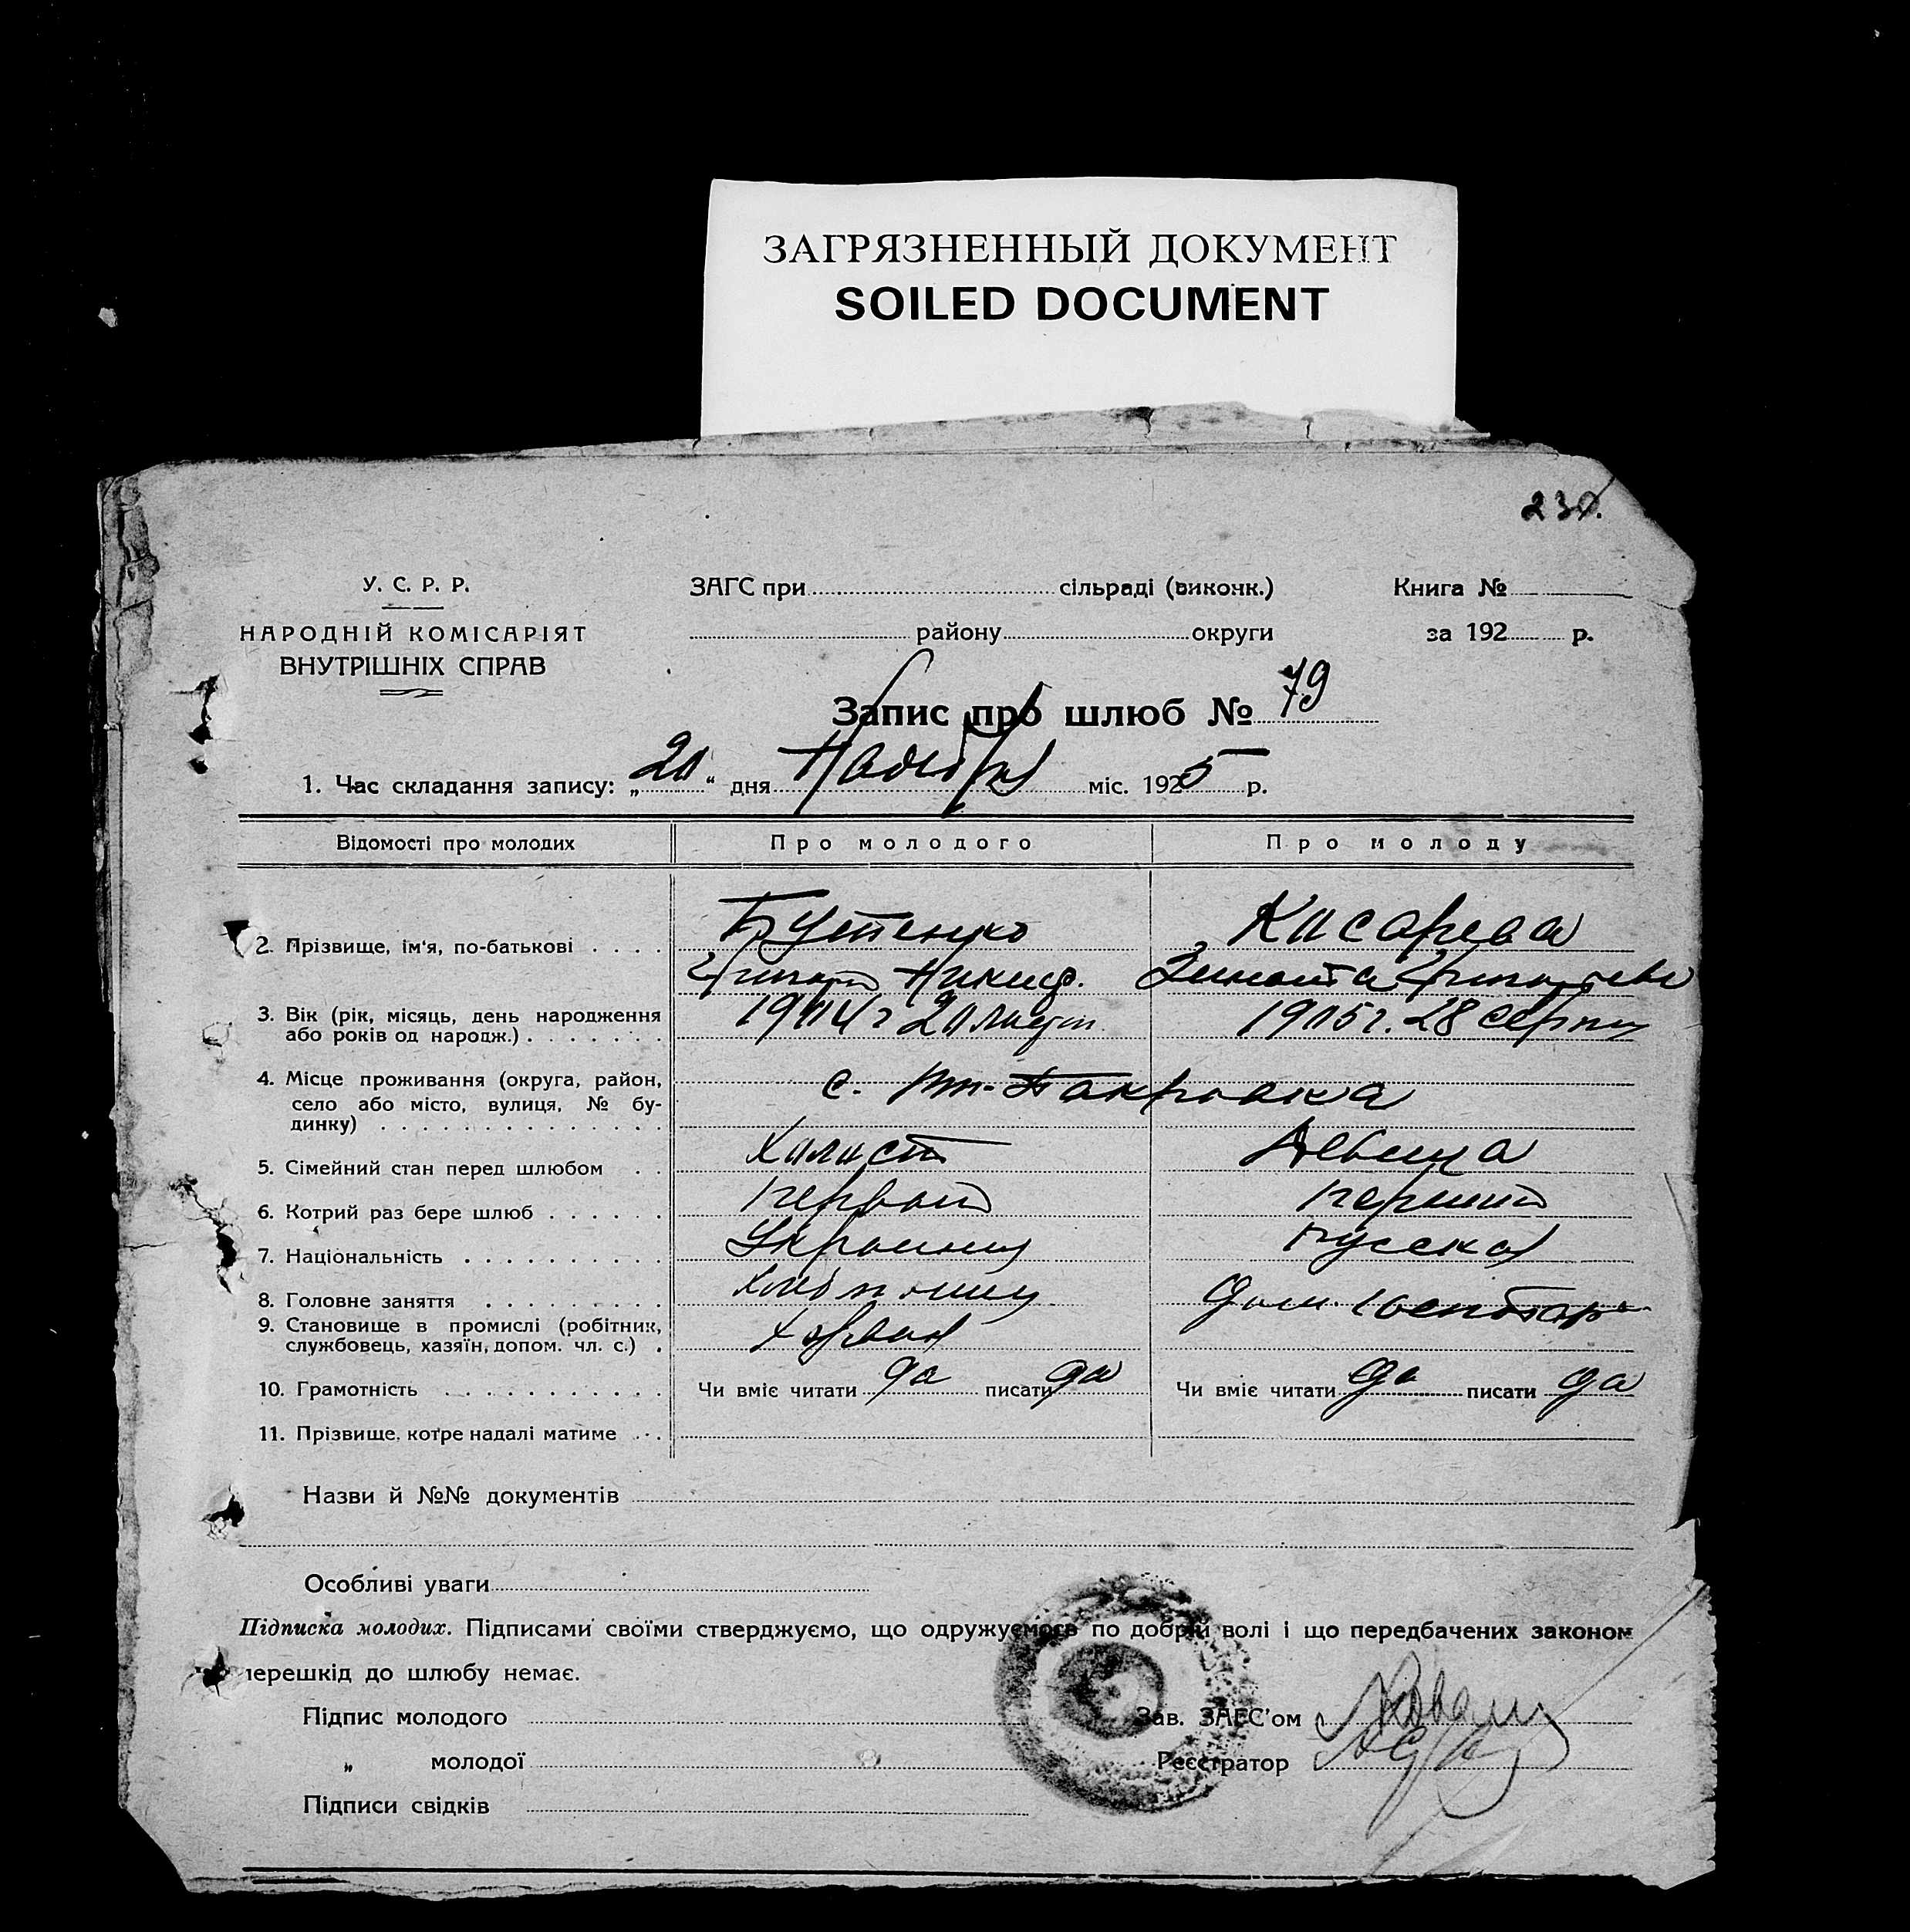 ЗАГРЯЗНЕННЫЙ ДОКУМЕНТ
SOILED DOCUMENT
230.
У. С. Р. Р.
НАРОДНІЙ КОМІСАРІЯТ
ВНУТРІШНІХ СПРАВ
ЗАГС при сільраді (виконк.)
району округи
Книга №
за 192 р.
Запис про шлюб № 79
1. Час складання запису: „20“ дня міс. 1925 р.
Відомості про молодих Про молодого Про молоду
2. Прізвище, ім'я, по-батькові Бутенко Косарева
Григорій Никиф.
3. Вік (рік, місяць, день народження 1904 г 20 1905 г. 28 серпня
або років од народж.)
4. Місце проживання (округа, район, с.
село або місто, вулиця, № бу-
динку)
5. Сімейний стан перед шлюбом холост девица
6. Котрий раз бере шлюб первый перший
7. Національність Украинец русска
8. Головне заняття дом.
9. Становище в промислі (робітник,
службовець, хазяїн, допом. чл. с.)
10. Грамотність Чи вміє читати да писати да Чи вміє читати да писати да
11. Прізвище, котре надалі матиме
Назви й №№ документів
Особливі уваги
Підписка молодих. Підписами своїми стверджуємо, що одружуємося по добрій волі і що передбачених законом
перешкід до шлюбу немає.
Підпис молодого Зав. ЗАГС'ом
„ молодої Реєстратор
Підписи свідків